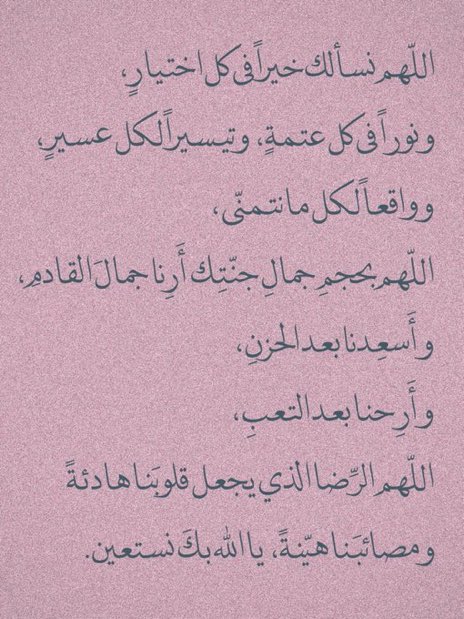 اللّهم نسألك خيراً في كل اختيارٍ،
ونوراً في كل عتمةٍ، وتيسيراً لكل عسيرٍ،
وواقعاً لكل ما نتمنّى،
اللّهم بحجمِ جمالِ جنّتِك أَرِنا جمالَ القادمِ،
وأَسعِدنا بعد الحزنِ،
وأَرِحنا بعد التعبِ،
اللّهم الرِّضا الذي يجعل قلوبَنا هادئةً
ومصائبَنا هيّنةً، يا الله بكَ نستعين.